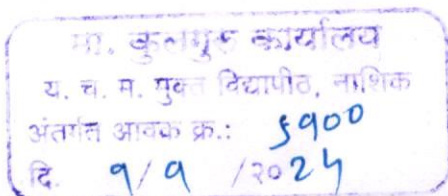 मा. कुलगुरु कार्यालय
य. च. म. मुक्त विद्यापीठ, नाशिक
अंतर्गत आवक क्र.: ५१००
दि. १/१/२०२५